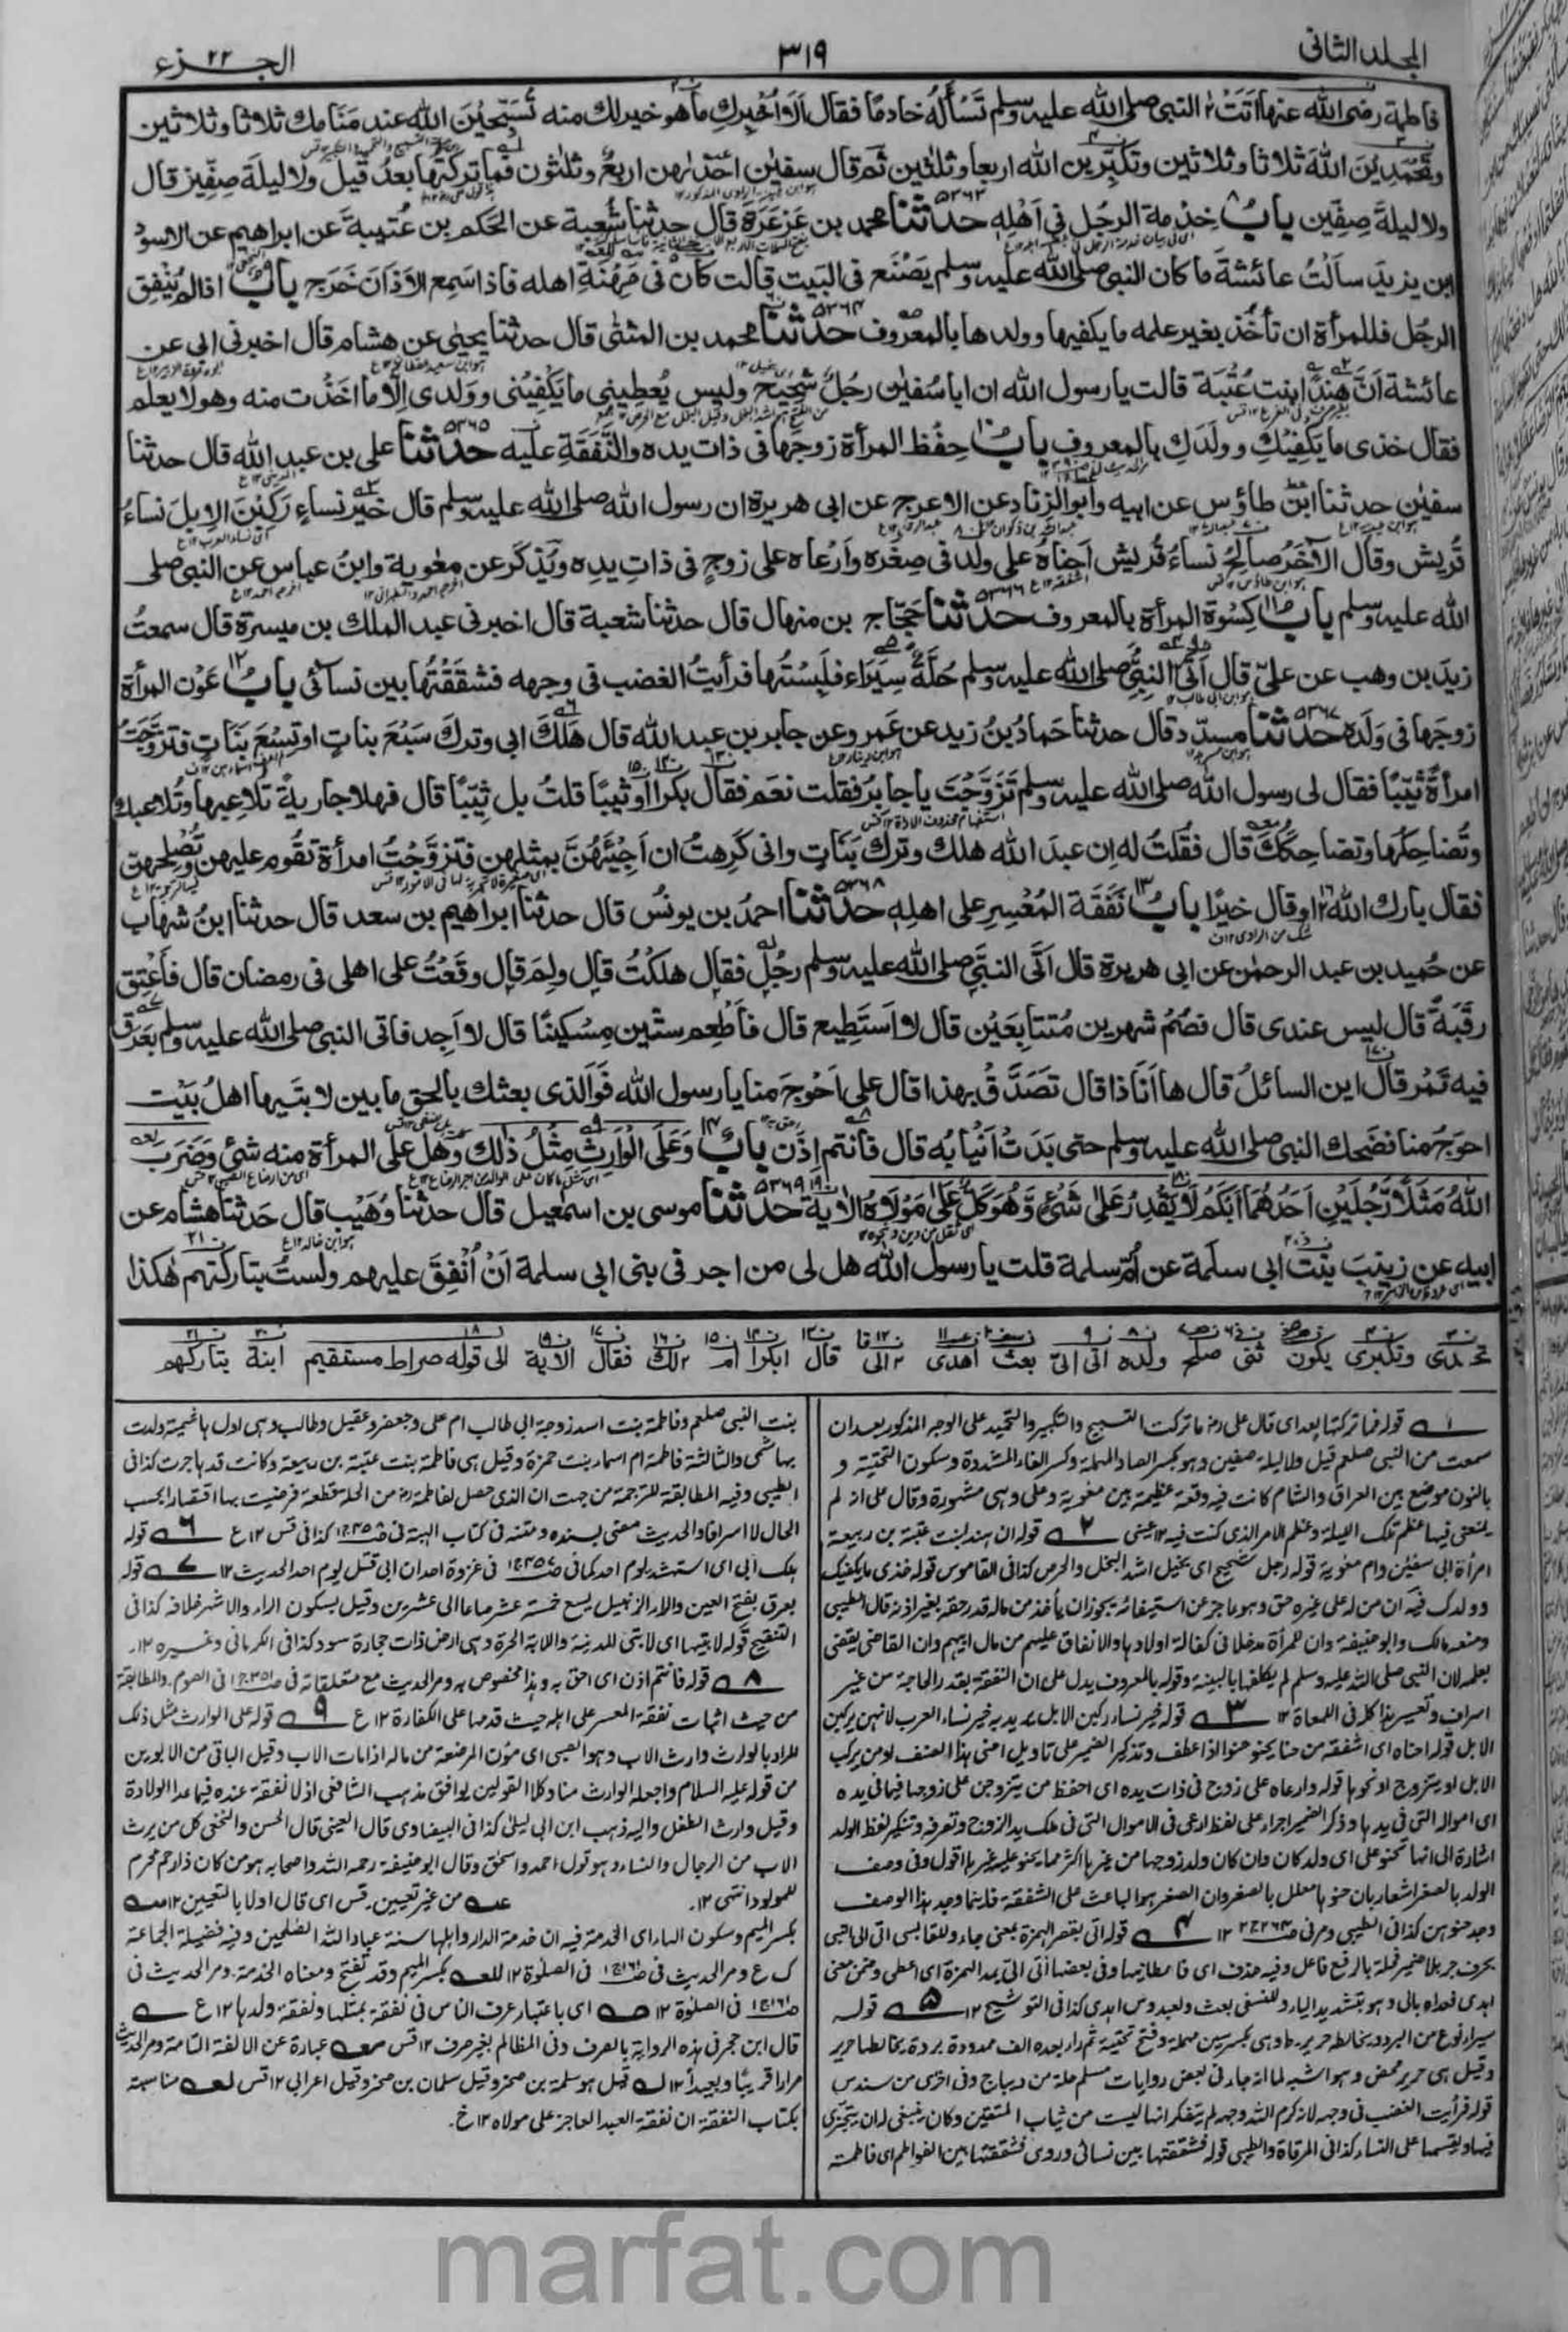 المجلد الثانى ٣١٩ الجزء ٢٢
فاطمة رضى الله عنها اَتَتْ النبى صلى الله عليه وسلم تَسْأَلُهُ خادمًا فقال اَلَا اُخْبِركِ ما هو خير لك منه تُسَبِّحِيْنَ الله عند مَنَامك ثلاثا وثلاثين
وتَحْمَدِيْنَ اللهَ ثلاثا وثلاثين وتكبِّرين الله اربعا وثلثين ثم قال سفيٰن احدٰىهن اربعٌ وثلثون فما تركتُها بعدُ قيل ولا ليلةَ صِفِّين قال
ولا ليلةَ صِفِّين بابُ خِدْمة الرجُل فى اَهْلِهٖ حدثنا محمد بن عَرْعَرَة قال حدثنا شُعبة عن الحَكَم بن عُتَيبةَ عن ابراهيم عن الاسود
ابن يزيدَ سألتُ عائشةَ ما كان النبى صلى الله عليه وسلم يَصْنَع فى البَيت قالت كان فى مِهْنَةِ اهله فاذا سَمِع الاَذَان خَرَج بابٌ اذا لم يُنْفِق
الرجُل فللمرأة ان تأخُذ بغير علمه ما يكفيها وولدها بالمعروف حدثنا محمد بن المثنٰى قال حدثنا يحيٰى عن هشام قال اخبرنى ابى عن
عائشة اَنَّ هِنْدًا بنت عُتْبَة قالت يا رسول الله ان ابا سُفيٰن رجُلٌ شَحِيْح وليس يُعطِينى ما يَكْفِيْنى وولدى اِلّا ما اخَذْت منه وهو لا يعلم
فقال خذى ما يَكْفِيْكِ وولدَكِ بالمعروف بابُ حِفْظ المرأة زوجَها فى ذات يده والنَّفَقَةِ عليه حدثنا على بن عبد الله قال حدثنا
سفيٰن حدثنا ابنُ طاؤس عن ابيه وابو الزناد عن الاعرج عن ابى هريرة ان رسول الله صلى الله عليه وسلم قال خير نساءٍ رَكِبْنَ الاِبِلَ نساءُ
قُريش وقال الاٰخَرُ صالحُ نساءُ قُريش اَحناه على ولد فى صِغَره واَرْعاه على زوجٍ فى ذاتِ يدِه ويُذكَر عن معٰوية وابنِ عباس عن النبى صلى
الله عليه وسلم باب كِسْوَة المرأة بالمعروف حدثنا حَجّاج بن منهال قال حدثنا شعبة قال اخبرنى عبد الملك بن ميسرة قال سمعتُ
زيدَ بن وهب عن علىّ قال اٰتَى اِلىَّ النبىُّ صلى الله عليه وسلم حُلَّةً سِيَرَاء فلَبِسْتُها فرأيتُ الغضب فى وجهه فشقَقْتُها بين نسائى بابُ عَوْن المرأة
زوجَها فى وَلَدِه حدثنا مسدّد قال حدثنا حَمادُ بنُ زيد عن عَمرو عن جابر بن عبد الله قال هَلَكَ ابى وترك سَبْعَ بناتٍ او تِسْعَ بَنَاتٍ فتزوَّجْتُ
امرأةً ثَيِّبًا فقال لى رسول الله صلى الله عليه وسلم تَزَوَّجْتَ يا جابرُ فقلت نعَم فقال بكرا اَو ثيبًا قلتُ بل ثيّبًا قال فهلا جاريةً تلاعبها وتُلاعبك
وتُضاحِكُها وتضاحكُك قال فقُلتُ له اِن عبدَ الله هلك وترك بَنَاتٍ وانى كَرِهتُ ان اَجِيْئَهُنَّ بمثلهن فتزوَّجْتُ امرأة تقُوم عليهن وتُصْلحهن
فقال بارك الله او قال خيرًا بابُ نَفَقَة المُعْسِرِ على اهلِهٖ حدثنا احمدُ بن يونُسَ قال حدثنا ابراهيم بن سعد قال حدثنا ابنُ شهاب
عن حُميد بن عبد الرحمٰن عن ابى هريرة قال اَتَى النبىَّ صلى الله عليه وسلم رجُلٌ فقال هلكتُ قال ولِمَ قال وقَعْتُ على اهلى فى رمضان قال فأَعْتِق
رقَبَةً قال ليس عندى قال فصُمْ شهرين مُتتابعَيْن قال لا اَستَطِيع قال فأَطْعِم ستّين مِسْكينًا قال لا اَجِد فاتى النبى صلى الله عليه وسلم بعَرَق
فيه تَمْر قال اين السائلُ قال ها اَنَا ذا قال تصَدَّقْ بهذا قال على اَحْوجَ منا يا رسول الله فوَالذى بعثك بالحق ما بين لابتَيها اهلُ بَيْت
احوَجُ منا فضَحِك النبى صلى الله عليه وسلم حتى بَدَتْ اَنْيابُه قال فانتم اِذَن بابٌ وَعَلَى الْوَارِثِ مِثْلُ ذٰلِك وهَل على المرأة منه شئ وَضَرَبَ
اللهُ مَثَلًا رَّجُلَيْنِ اَحَدُهُمَا اَبْكَمُ لَا يَقْدِرُ عَلٰى شَىْءٍ وَّهُوَ كَلٌّ عَلٰى مَوْلَاهُ الاٰية حدثنا موسى بن اسمٰعيل قال حدثنا وُهَيْب قال حدثنا هشام عن
ابيه عن زينبَ بنت ابى سلَمة عن اُمّ سلمة قلت يا رسول الله هل لى من اجر فى بنى ابى سلمة اَنْ اُنْفِقَ عليهم ولستُ بتاركتهم هٰكذا
وتكبرى يكون ثنى صلح ولده اتى الىّ بعث اهدى الى قال ابكرا ام لك فقال الاية الى قوله صراط مستقيم ابنة بتاركهم
قوله فما تركتها بعد اى قال على رض ما تركت التسبيح والتكبير والتحميد على الوجه المذكور بعد ان
سمعت من النبى صلعم قيل ولا ليلة صفين وهو بكسر الصاد المهملة وكسر الفاء المشددة وسكون التحتية و
بالنون موضع بين العراق والشام كانت فيه وقعة عظيمة بين معوية وعلى وهى مشهورة وقال على انه لم
يمنعنى فيها عظم تلك الليلة وعظم الامر الذى كنت فيه ١٢ عينى ٢ قوله ان هند بنت عتبة بن ربيعة
امرأة ابى سفيٰن وام معوية قوله رجل شحيح اى بخيل اشد البخل والحرص كذا فى القاموس قوله خذى ما يكفيك
وولدك فيه ان من له على غيره حق وهو عاجز عن استيفائه يجوز ان يأخذ من ماله قدر حقه بغير اذنه قال الطيبى
ومنعه مالك وابو حنيفة وان للمرأة مدخلا فى كفالة اولادها والانفاق عليهم من مال ابيهم وان القاضى يقضى
بعلمه لان النبى صلى الله عليه وسلم لم يكلفها بالبينة وقوله بالمعروف يدل على ان النفقة بقدر الحاجة من غير
اسراف وتقتير هذا كله فى اللمعات ١٢ ٣ قوله خير نساء ركبن الابل يريد به خير نساء العرب لانهن يركبن
الابل قوله احناه اى اشفقه من حنا يحنو حنوا اذا عطف وتذكير الضمير على تاويل احنى هذا الصنف او من يركب
الابل او يتزوج او نحوها قوله وارعاه على زوج فى ذات يده اى احفظ من يتزوجن على زوجها فيما فى يده
اى امواله التى فى يدها وذكر الضمير اجراء على لفظ ارعى فى الاموال التى فى ملك يد الزوج وتعرفه وتنكير لفظ الولد
اشارة الى انها تحنو على اى ولد كان وان كان ولد زوجها من غيرها اكثر مما يحنو عليه غيرها اقول وفى وصف
الولد بالصغر اشعار بان حنوها معلل بالصغر وان الصغر هو الباعث على الشفقة فاينما وجد هذا الوصف
وجد حنوهن كذا فى الطيبى ومر فى ١٢ ٤ قوله اتى بقصر الهمزة بمعنى جاء وللقابسى اتى الى النبى
بحرف جر بلا ضمير قبله بالرفع فاعل وفيه حذف اى فاعطانيها وفى بعضها اٰتى الىّ بمد الهمزة اى اعطى وضمن معنى
اهدى فعداه بالى وهو بتشديد الياء وللنسفى بعث ولعبدوس اهدى كذا فى التوشيح ١٢ ٥ قوله
سيراء نوع من البرود يخالطه حرير وهى بكسر سين مهملة وفتح تحتية ثم راء بعده الف ممدودة بردة يخالطها حرير
وقيل هى حرير محض وهو اشبه لما انه جاء فى بعض روايات مسلم حلة من ديباج وفى اخرى من سندس
قوله فرأيت الغضب فى وجهه لانه كرم الله وجهه لم يتفكر انها ليست من ثياب المتقين وكان ينبغى له ان يتحرى
فيها ويقسمها على النساء كذا فى المرقاة والطيبى قوله فشققتها بين نسائى وروى فشققتها بين الفواطم اى فاطمة
بنت النبى صلعم وفاطمة بنت اسد زوجة ابى طالب ام على وجعفر وعقيل وطالب وهى اول هاشمية ولدت
بهاشمى والثالثة فاطمة ام اسماء بنت حمزة وقيل هى فاطمة بنت عتبة بن ربيعة وكانت قد هاجرت كذا فى
الطيبى وفيه المطابقة للترجمة من جهت ان الذى حصل لفاطمة رض من الحلة قطعة فرضيت بها اقتصارا بحسب
الحال لا اسرافا والحديث مضى بسنده ومتنه فى كتاب الهبة فى كذا فى قس ١٢ ع ٦ قوله
هلك ابى اى استشهد يوم احد كما فى فى غزوة احد ان ابى قتل يوم احد الحديث ١٢ ٧ قوله
بعرق بفتح العين والراء الزنبيل يسع خمسة عشر صاعا الى عشرين وقيل بسكون الراء والاشهر خلافه كذا فى
التنقيح قوله لابتيها اى لابتى المدينة واللابة الحرة وهى ارض ذات حجارة سود كذا فى الكرمانى وغيره ١٢
٨ قوله فانتم اذن اى احق به وهذا مخصوص به ومر الحديث مع متعلقاته فى فى الصوم والمطابقة
من حيث اثبات نفقة المعسر على اهله حيث قدمها على الكفارة ١٢ ع ٩ قوله على الوارث مثل ذلك
المراد بالوارث وارث الاب وهو الصبى اى مؤن المرضعة من ماله اذا مات الاب وقيل الباقى من الابوين
من قوله عليه السلام واجعله الوارث منا وكلا القولين يوافق مذهب الشافعى اذ لا نفقة عنده فيما عدا الولادة
وقيل وارث الطفل واليه ذهب ابن ابى ليلى كذا فى البيضاوى قال العينى قال الحسن والنخعى كل من يرث
الاب من الرجال والنساء وهو قول احمد واسحٰق وقال ابو حنيفة رحمه الله واصحابه هو من كان ذا رحم محرم
للمولود انتهى ١٢ عه من غير تعيين قس اى قال اولا بالتعيين ١٢
بكسر الميم وسكون الهاء اى الخدمة فيه ان خدمة الدار واهلها سنة عباد الله الصلحين وفيه فضيلة الجماعة
ك ع ومر الحديث فى فى الصلوة ١٢ للعه بكسر الميم وقد تفتح ومعناه الخدمة ومر الحديث فى
فى الصلوة ١٢ اى باعتبار عرف الناس فى نفقة بمثلها ونفقة ولدها ١٢ ع
قال ابن حجر فى هذه الرواية بالصرف وفى المظالم بغير صرف ١٢ قس عبارة عن الالفة التامة ومر الحديث
مرارا قريبًا وبعيدًا ١٢ قيل هو سلمة بن صخر وقيل سلمان بن صخر وقيل اعرابى ١٢ قس مناسبة
بكتاب النفقة ان نفقة العبد العاجز على مولاه ١٢ خ
marfat.com